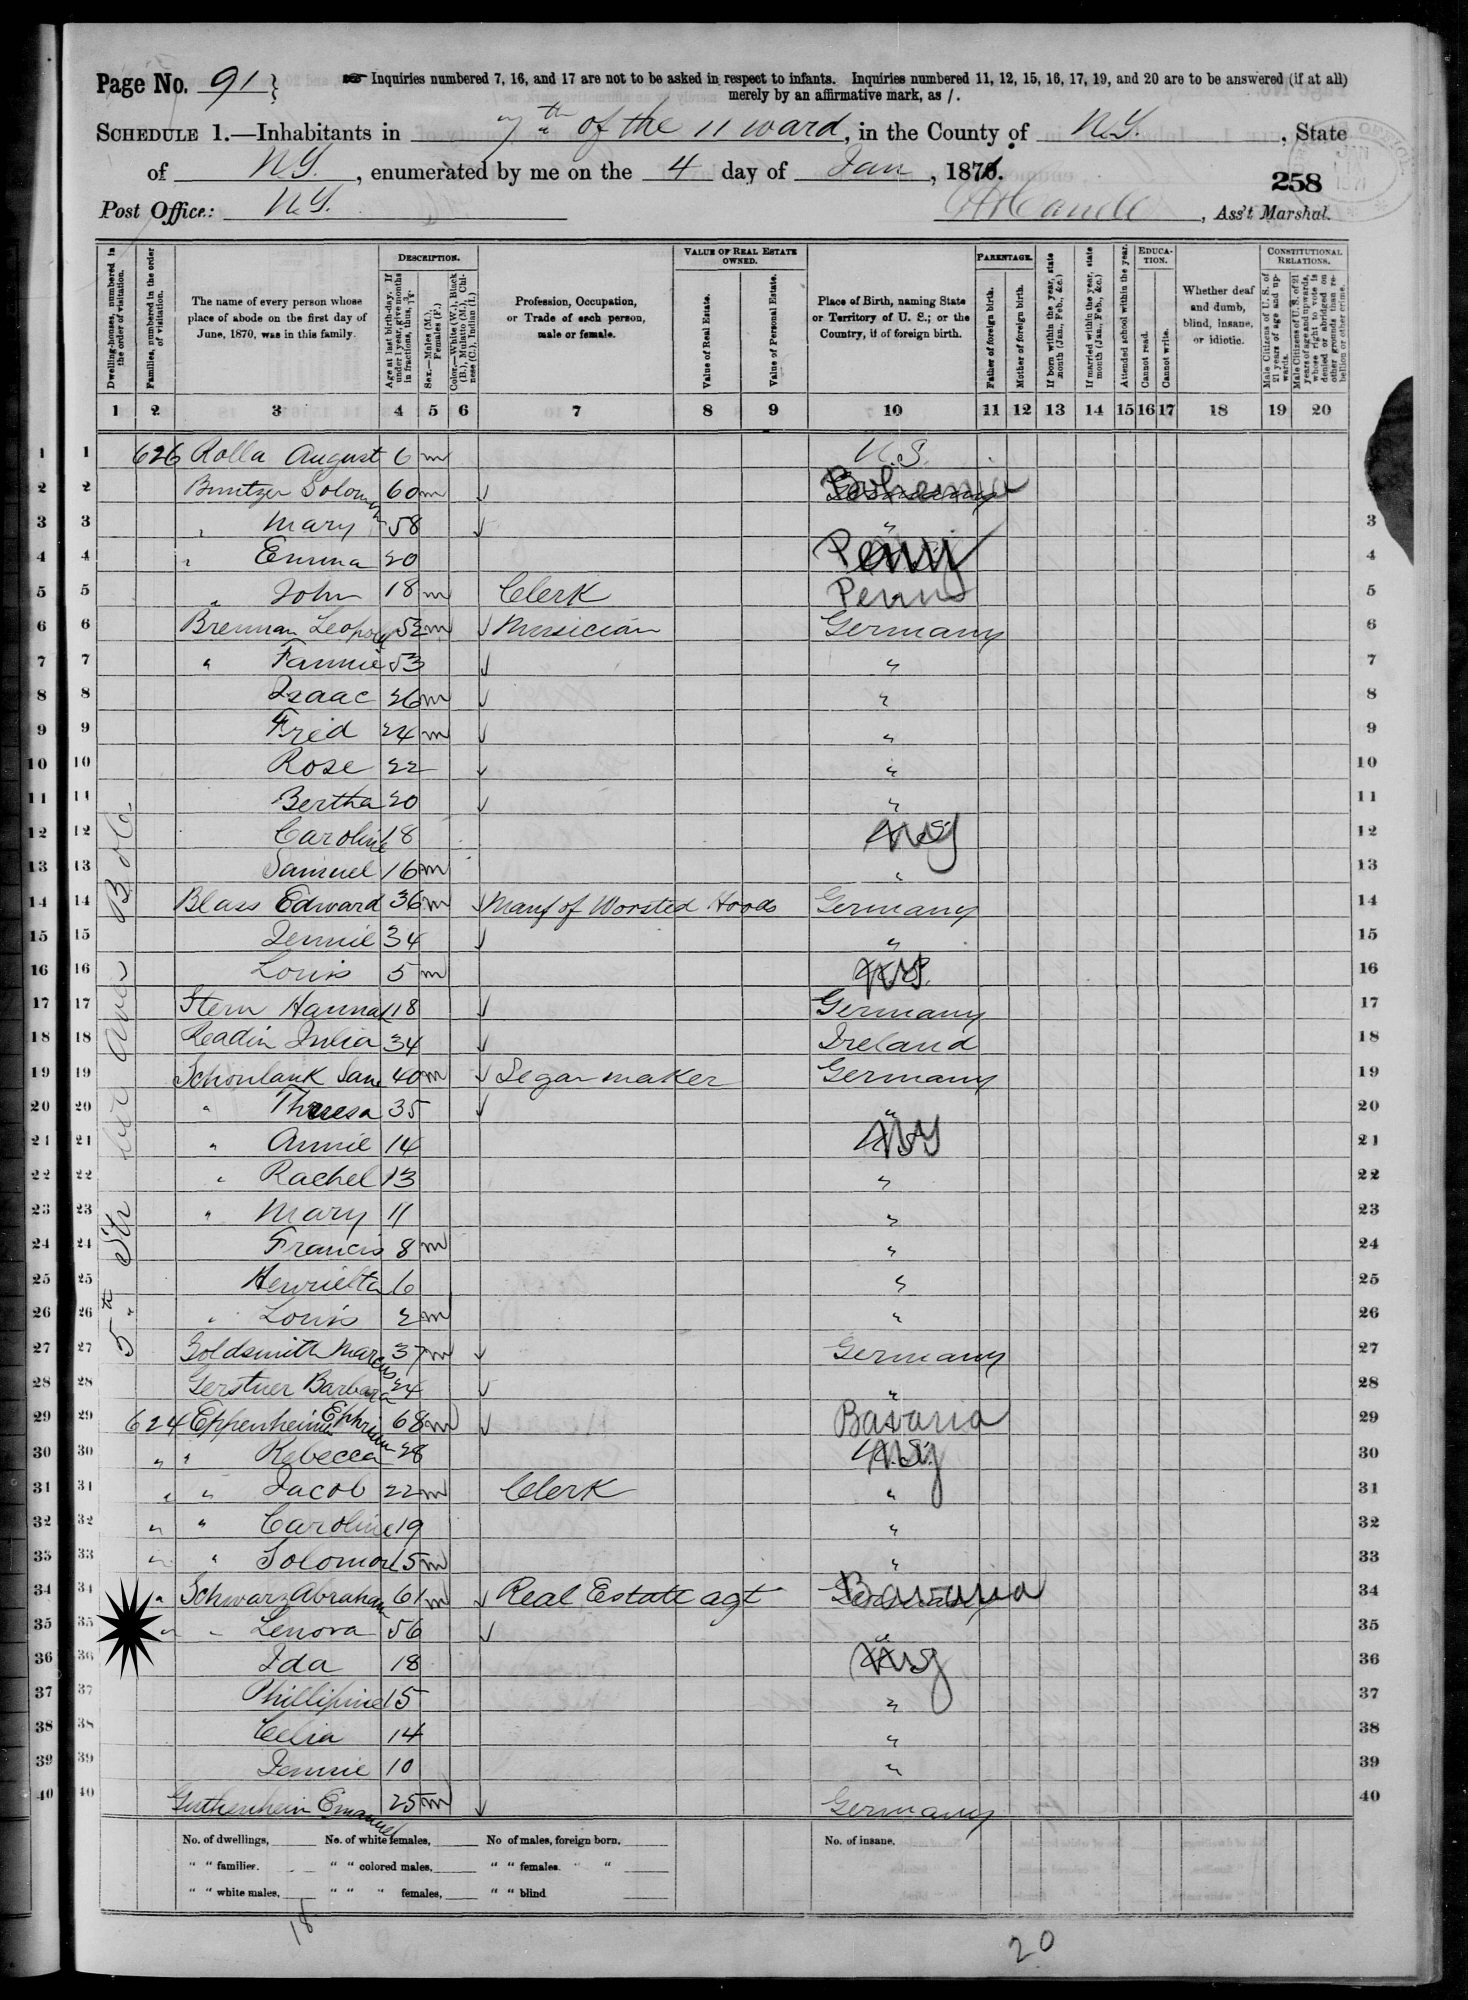 Page No. 91
Inquiries numbered 7, 16, and 17 are not to be asked in respect to infants. Inquiries numbered 11, 12, 15, 16, 17, 19, and 20 are to be answered (if at all)
merely by an affirmative mark, as /.
SCHEDULE 1.—Inhabitants in 7th of the 11 ward, in the County of N.Y., State
of N.Y., enumerated by me on the 4 day of Jan, 1871.
258
Post Office: N.Y.
, Ass't Marshal.
DESCRIPTION.
VALUE OF REAL ESTATE OWNED.
PARENTAGE.
EDUCATION.
CONSTITUTIONAL RELATIONS.
Dwelling-houses, numbered in the order of visitation.
Families, numbered in the order of visitation.
The name of every person whose place of abode on the first day of June, 1870, was in this family.
Age at last birth-day. If under 1 year, give months in fractions, thus, 3/12.
Sex.—Males (M.), Females (F.)
Color.—White (W.), Black (B.), Mulatto (M.), Chinese (C.), Indian (I.)
Profession, Occupation, or Trade of each person, male or female.
Value of Real Estate.
Value of Personal Estate.
Place of Birth, naming State or Territory of U. S.; or the Country, if of foreign birth.
Father of foreign birth.
Mother of foreign birth.
If born within the year, state month (Jan., Feb., &c.)
If married within the year, state month (Jan., Feb., &c.)
Attended school within the year.
Cannot read.
Cannot write.
Whether deaf and dumb, blind, insane, or idiotic.
Male Citizens of U. S. of 21 years of age and upwards.
Male Citizens of U. S. of 21 years of age and upwards, whose right to vote is denied or abridged on other grounds than rebellion or other crime.
1 2 3 4 5 6 7 8 9 10 11 12 13 14 15 16 17 18 19 20
1 626 Rolla August 6 m U.S.
2 Solomon 60 m Bohemia
3 " Mary 58 "
4 " Emma 20 Penn
5 " John 18 m Clerk Penns
6 Brennan Leopold 52 m Musician Germany
7 " Fannie 53 "
8 Isaac 26 m "
9 Fred 24 m "
10 Rose 22 "
11 Bertha 20 "
12 Caroline 18 NY
13 Samuel 16 m "
14 Blass Edward 36 m Manf of Worsted Hoods Germany
15 Jennie 34 "
16 Louis 5 m
17 Stern Hannah 18 Germany
18 Readin Julia 34 Ireland
19 Schonlank Sam 40 m Segar maker Germany
20 " Theresa 35 "
21 " Annie 14 NY
22 " Rachel 13 "
23 " Mary 11 "
24 Francis 8 m "
25 Henrietta 6 "
26 " Louis 2 m "
27 Goldsmith Marcus 37 m Germany
28 Gerstner Barbara 24 "
29 624 Eppenheimer Ephriam 68 m Bavaria
30 " " Rebecca 28 NY
31 " " Jacob 22 m Clerk "
32 " " Caroline 19 "
33 " " Solomon 15 m "
34 " Schwarz Abraham 61 m Real Estate agt Bavaria
35 " " Lenora 56 "
36 Ida 18 NY
37 Phillipine 15 "
38 Celia 14 "
39 Jennie 10 "
40 Guthenhein Emanuel 25 m Germany
No. of dwellings, No. of white females, No of males, foreign born, No. of insane,
" " families. " " colored males, " " females. " "
" " white males, " " " females, " " blind
18
20